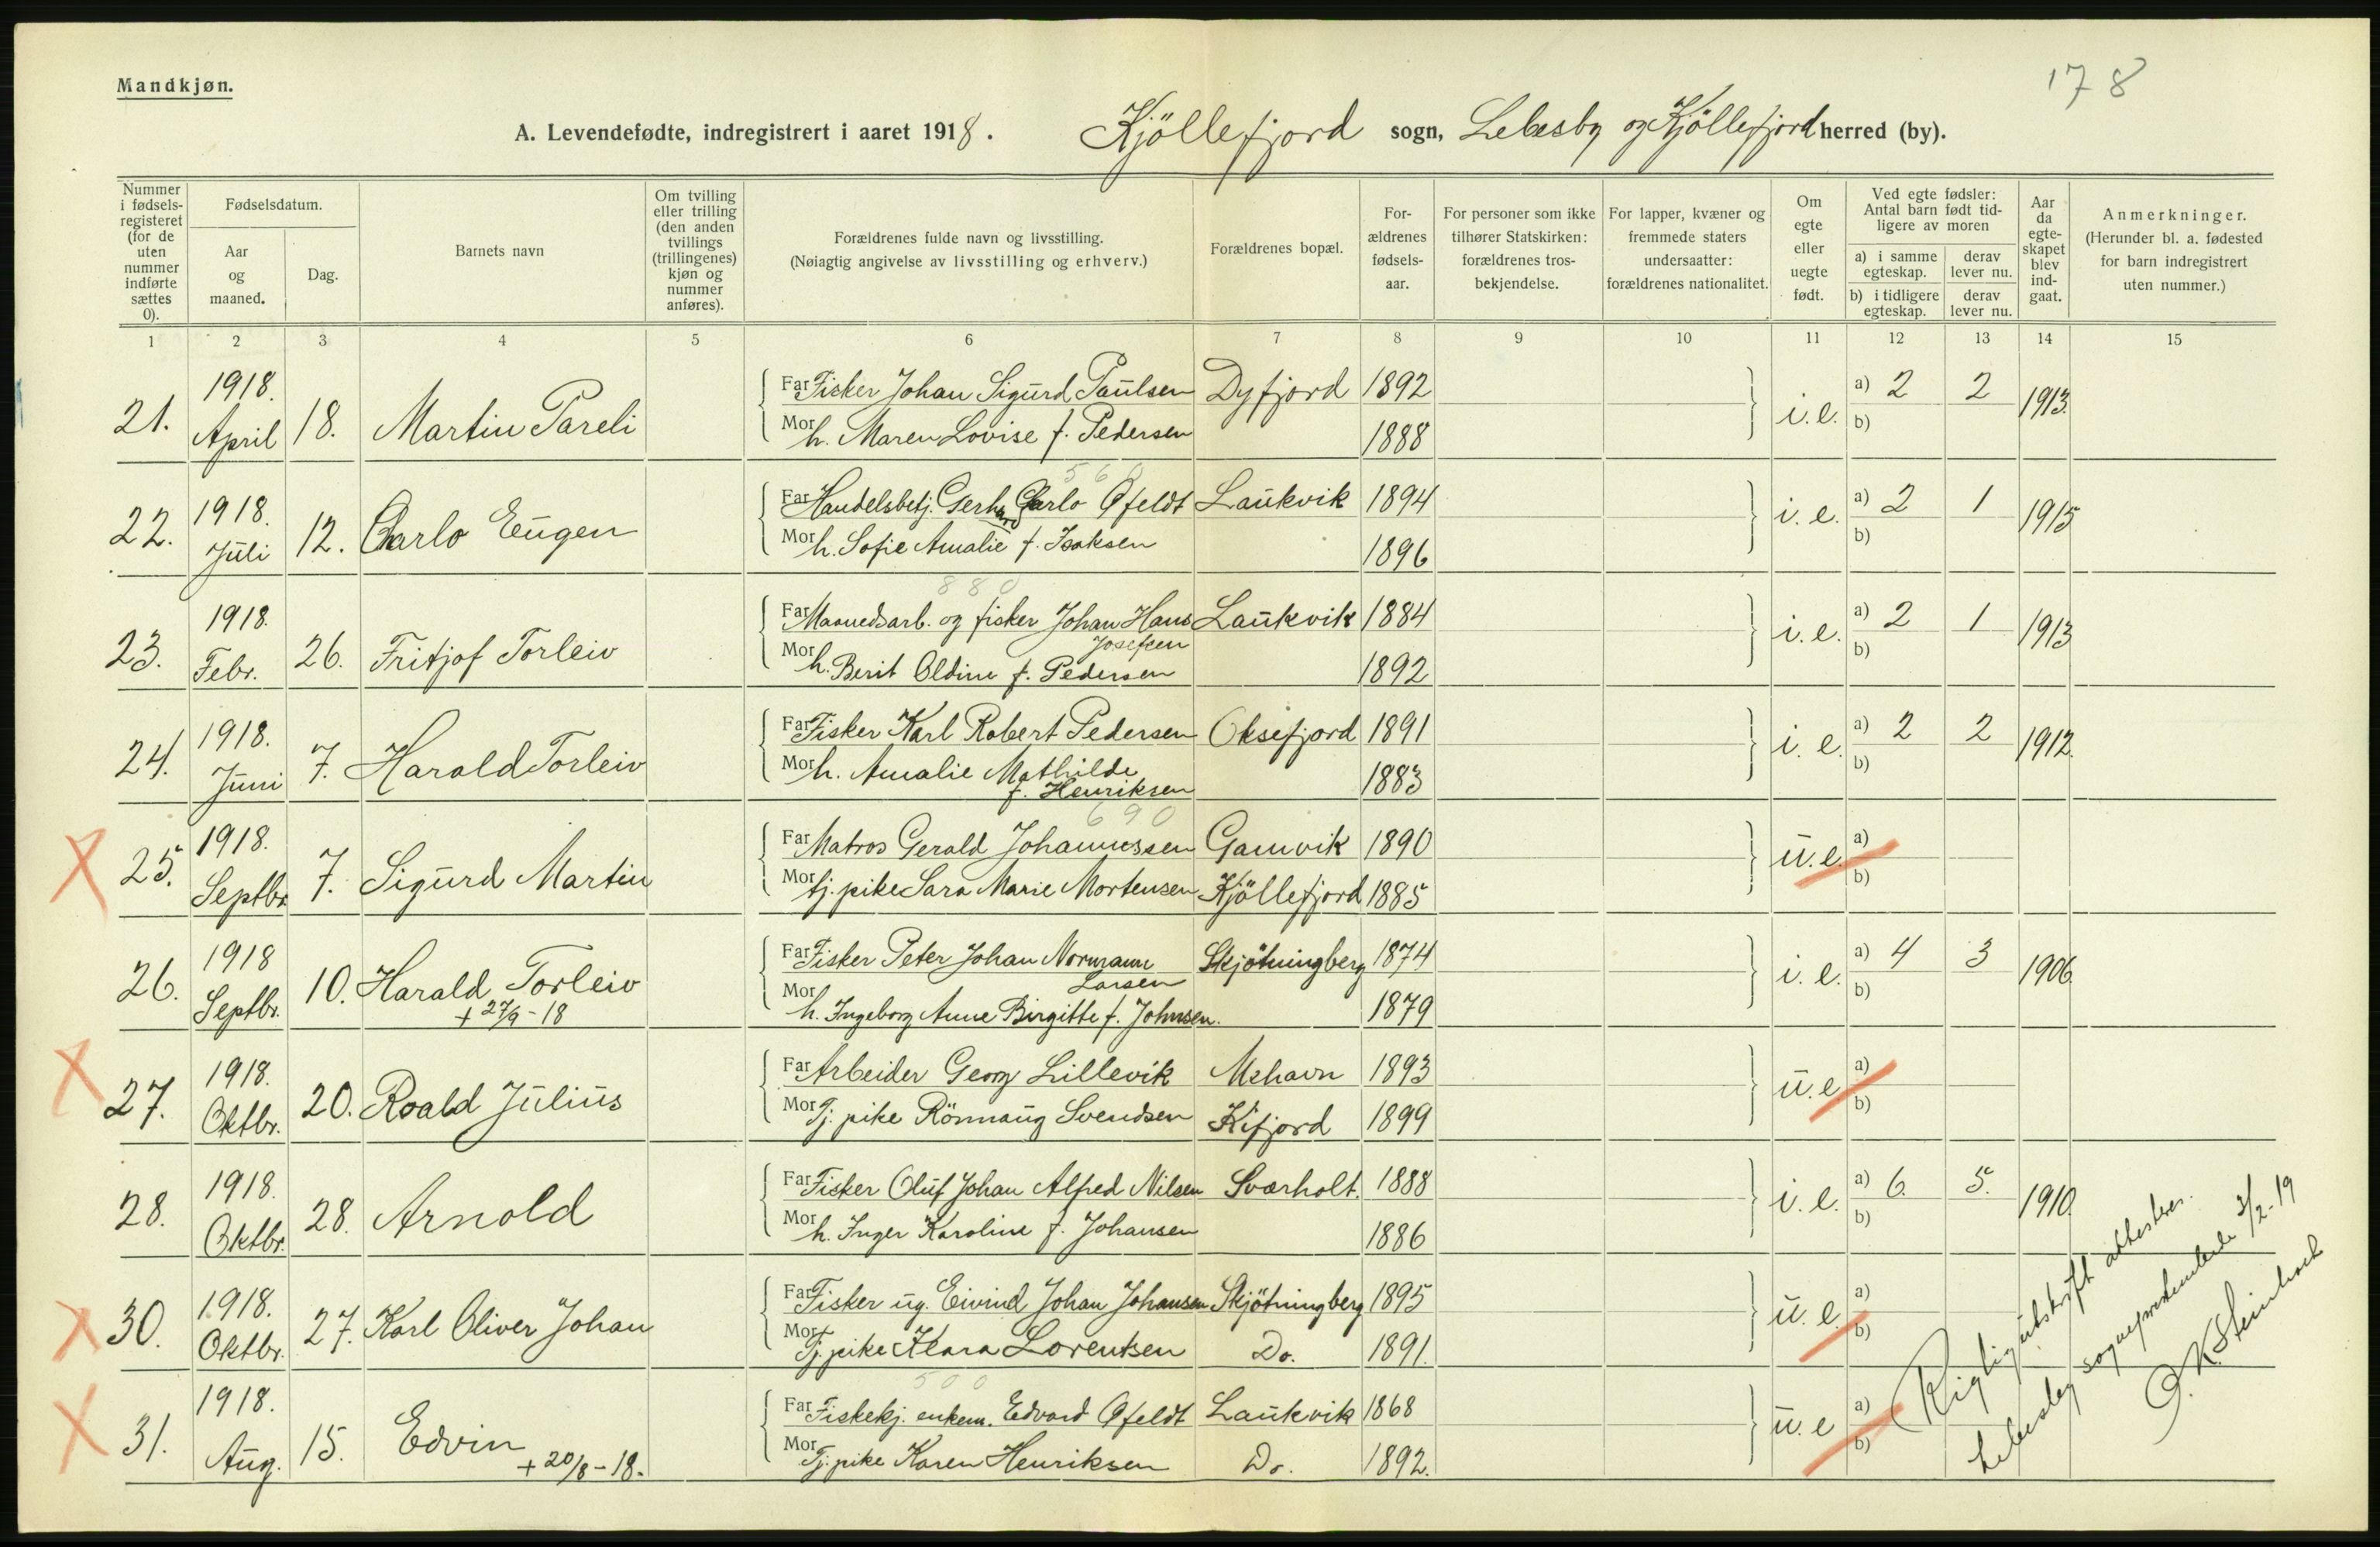 Mandkjøn.
178
A. Levendefødte, indregistrert i aaret 1918. Kjöllefjord sogn, Lebesby og Kjöllefjord herred (by).
Nummer i fødsels-registeret (for de uten nummer indførte sættes 0).
Fødselsdatum.
Aar og maaned.
Dag.
Barnets navn
Om tvilling eller trilling (den anden tvillings (trillingenes) kjøn og nummer anføres).
Forældrenes fulde navn og livsstilling.
(Nøiagtig angivelse av livsstilling og erhverv.)
Forældrenes bopæl.
For-ældrenes fødsels-aar.
For personer som ikke tilhører Statskirken: forældrenes tros-bekjendelse.
For lapper, kvæner og fremmede staters undersaatter: forældrenes nationalitet.
Om egte eller uegte født.
Ved egte fødsler: Antal barn født tid-ligere av moren
a) i samme egteskap.
derav lever nu.
b) i tidligere egteskap.
derav lever nu.
Aar da egte-skapet blev ind-gaat.
Anmerkninger.
(Herunder bl. a. fødested for barn indregistrert uten nummer.)
1 2 3 4 5 6 7 8 9 10 11 12 13 14 15
21. 1918. April 18. Martin Pareli Far Fisker Johan Sigurd Paulsen Dyfjord 1892 i.e. a) 2 2 1913.
Mor h. Maren Lovise f. Pedersen 1888 b)
560
22. 1918. Juli 12. Charlo Eugen Far Handelsbetj. Gerhard Charlo Øfeldt Laukvik 1894 i.e. a) 2 1 1915
Mor h. Sofie Amalie f. Isaksen 1896 b)
880
23. 1918. Febr. 26. Fritjof Torleiv Far Maanedsarb. og fisker Johan Hans Josefsen Laukvik 1884 i.e. a) 2 1 1913
Mor h. Berit Oldine f. Pedersen 1892 b)
24. 1918. Juni 7. Harald Torleiv Far Fisker Karl Robert Pedersen Oksefjord 1891 i.e. a) 2 2 1912.
Mor h. Amalie Mathilde f. Henriksen 1883 b)
690
25. 1918. Septbr. 7. Sigurd Martin Far Matros Gerald Johannessen Gamvik 1890 u.e. a)
Mor tj. pike Sara Marie Mortensen Kjöllefjord 1885 b)
26. 1918 Septbr. 10. Harald Torleiv + 27/9-18 Far Fisker Peter Johan Normann Larsen Skjötningberg 1874 i.e. a) 4 3 1906.
Mor h. Ingeborg Anne Birgitte f. Johnsen. 1879 b)
27. 1918. Oktbr. 20. Roald Julius Far Arbeider Georg Lillevik Mehavn 1893 u.e. a)
Mor Tj. pike Rönnaug Svendsen Kifjord 1899 b)
28. 1918. Oktbr. 28. Arnold Far Fisker Oluf Johan Alfred Nilsen Sværholt. 1888 i.e. a) 6. 5. 1910.
Mor h. Inger Karoline f. Johansen 1886 b)
30. 1918. Oktbr. 27. Karl Oliver Johan Far Fisker ug. Eivind Johan Johansen Skjötningberg 1895 u.e. a)
Mor Tj. pike Klara Lorentsen Do. 1891. b)
500
31. 1918. Aug. 15. Edvin + 20/8-18. Far Fiskekj. enkem. Edvard Øfeldt Laukvik 1868 u.e a)
Mor Tj. pike Karen Henriksen Do. 1892. b)
Rigtig utskrift attesteres.
Lebesby sogneprestembede 3/2-19